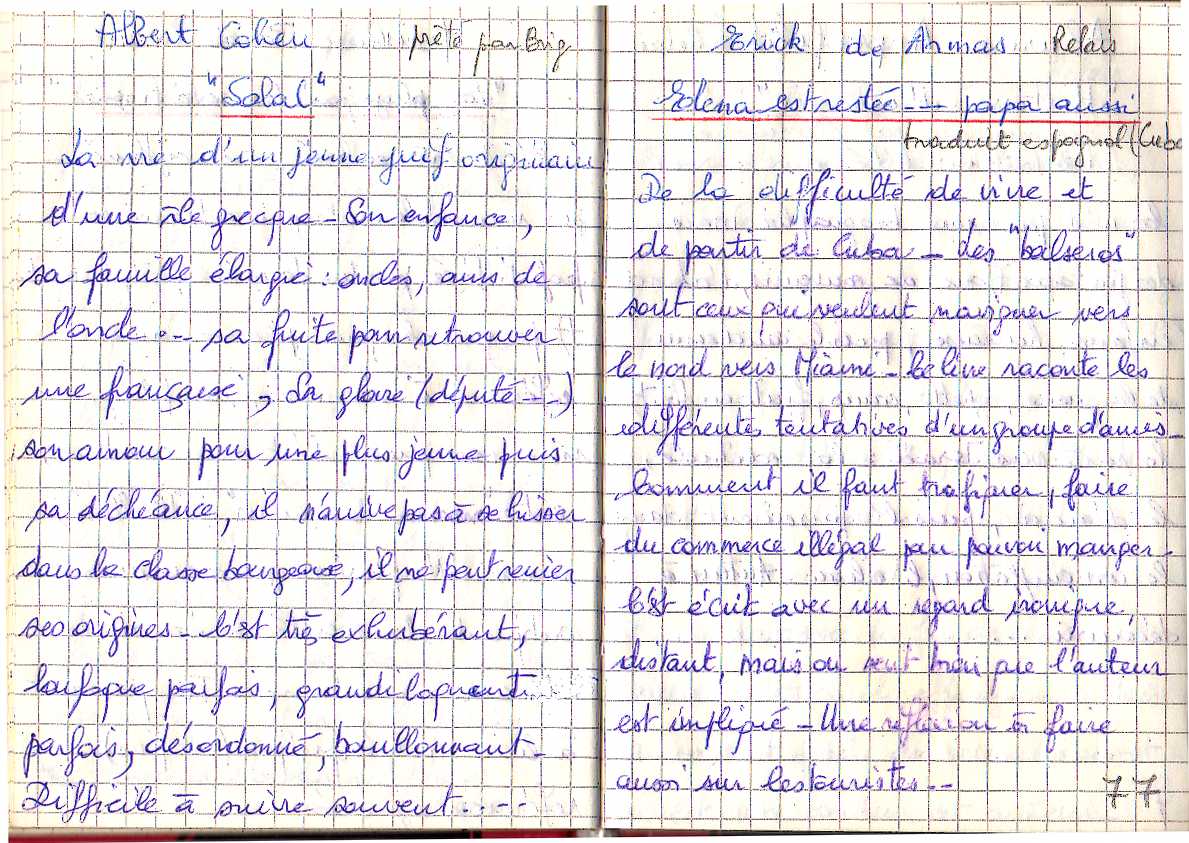 Albert Cohen prêté par Brig
"Solal"
La vie d'un jeune juif originaire
d'une île grecque - Son enfance,
sa famille élargie : oncles, amis de
l'oncle .-- sa fuite pour retrouver
une française, la gloire (député ---)
son amour pour une plus jeune puis
sa déchéance, il n'arrive pas à se hisser
dans la classe bourgeoise, il ne peut renier
ses origines - C'est très exhubérant,
loufoque parfois, grandiloquent
parfois, désordonné, bouillonnant -
Difficile à suivre souvent ..--
Erick de Armas Relais
Elena est restée --- papa aussi
traduit espagnol (Cuba
De la difficulté de vivre et
de partir de Cuba - Les "balseros"
sont ceux qui veulent naviguer vers
le nord vers Miami - Le livre raconte les
différentes tentatives d'un groupe d'amis -
Comment il faut trafiquer, faire
du commerce illégal pour pouvoir manger -
C'est écrit avec un regard ironique,
distant, mais on sent bien que l'auteur
est impliqué - Une réflexion à faire
aussi sur les touristes --
77